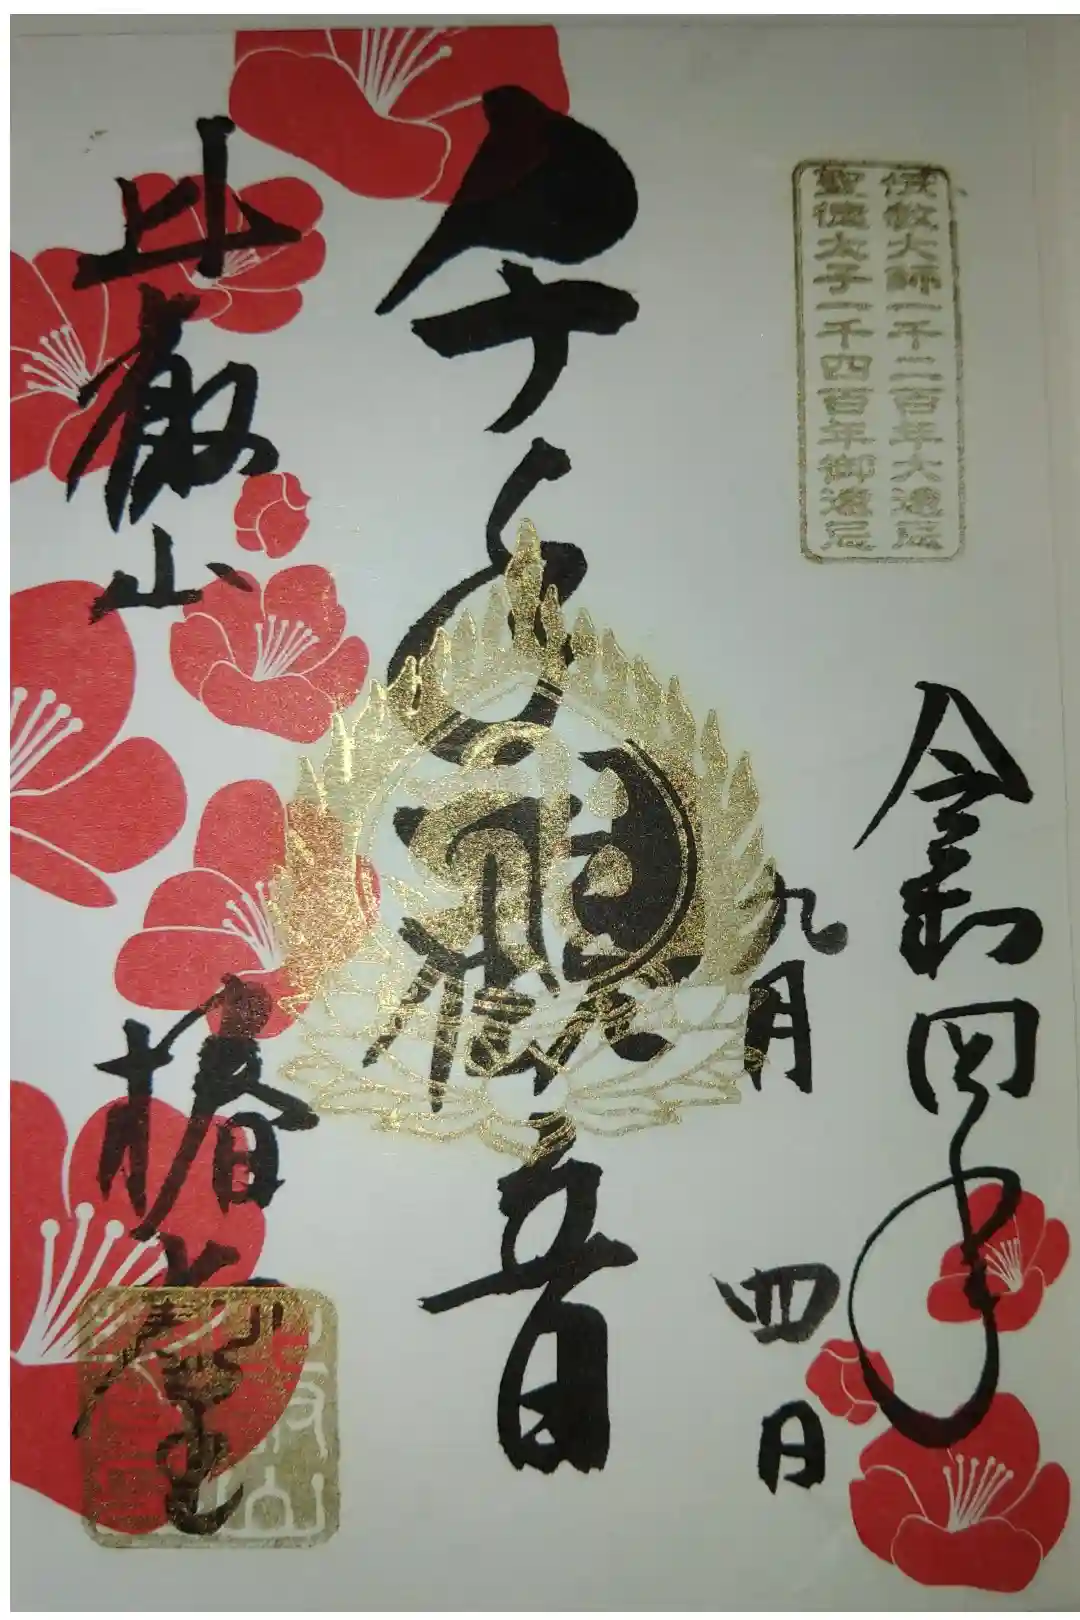 傳教大師一千二百年大遠忌
聖徳太子一千四百年御遠忌
令和四年
九月四日
千手観音
比叡山 椿堂